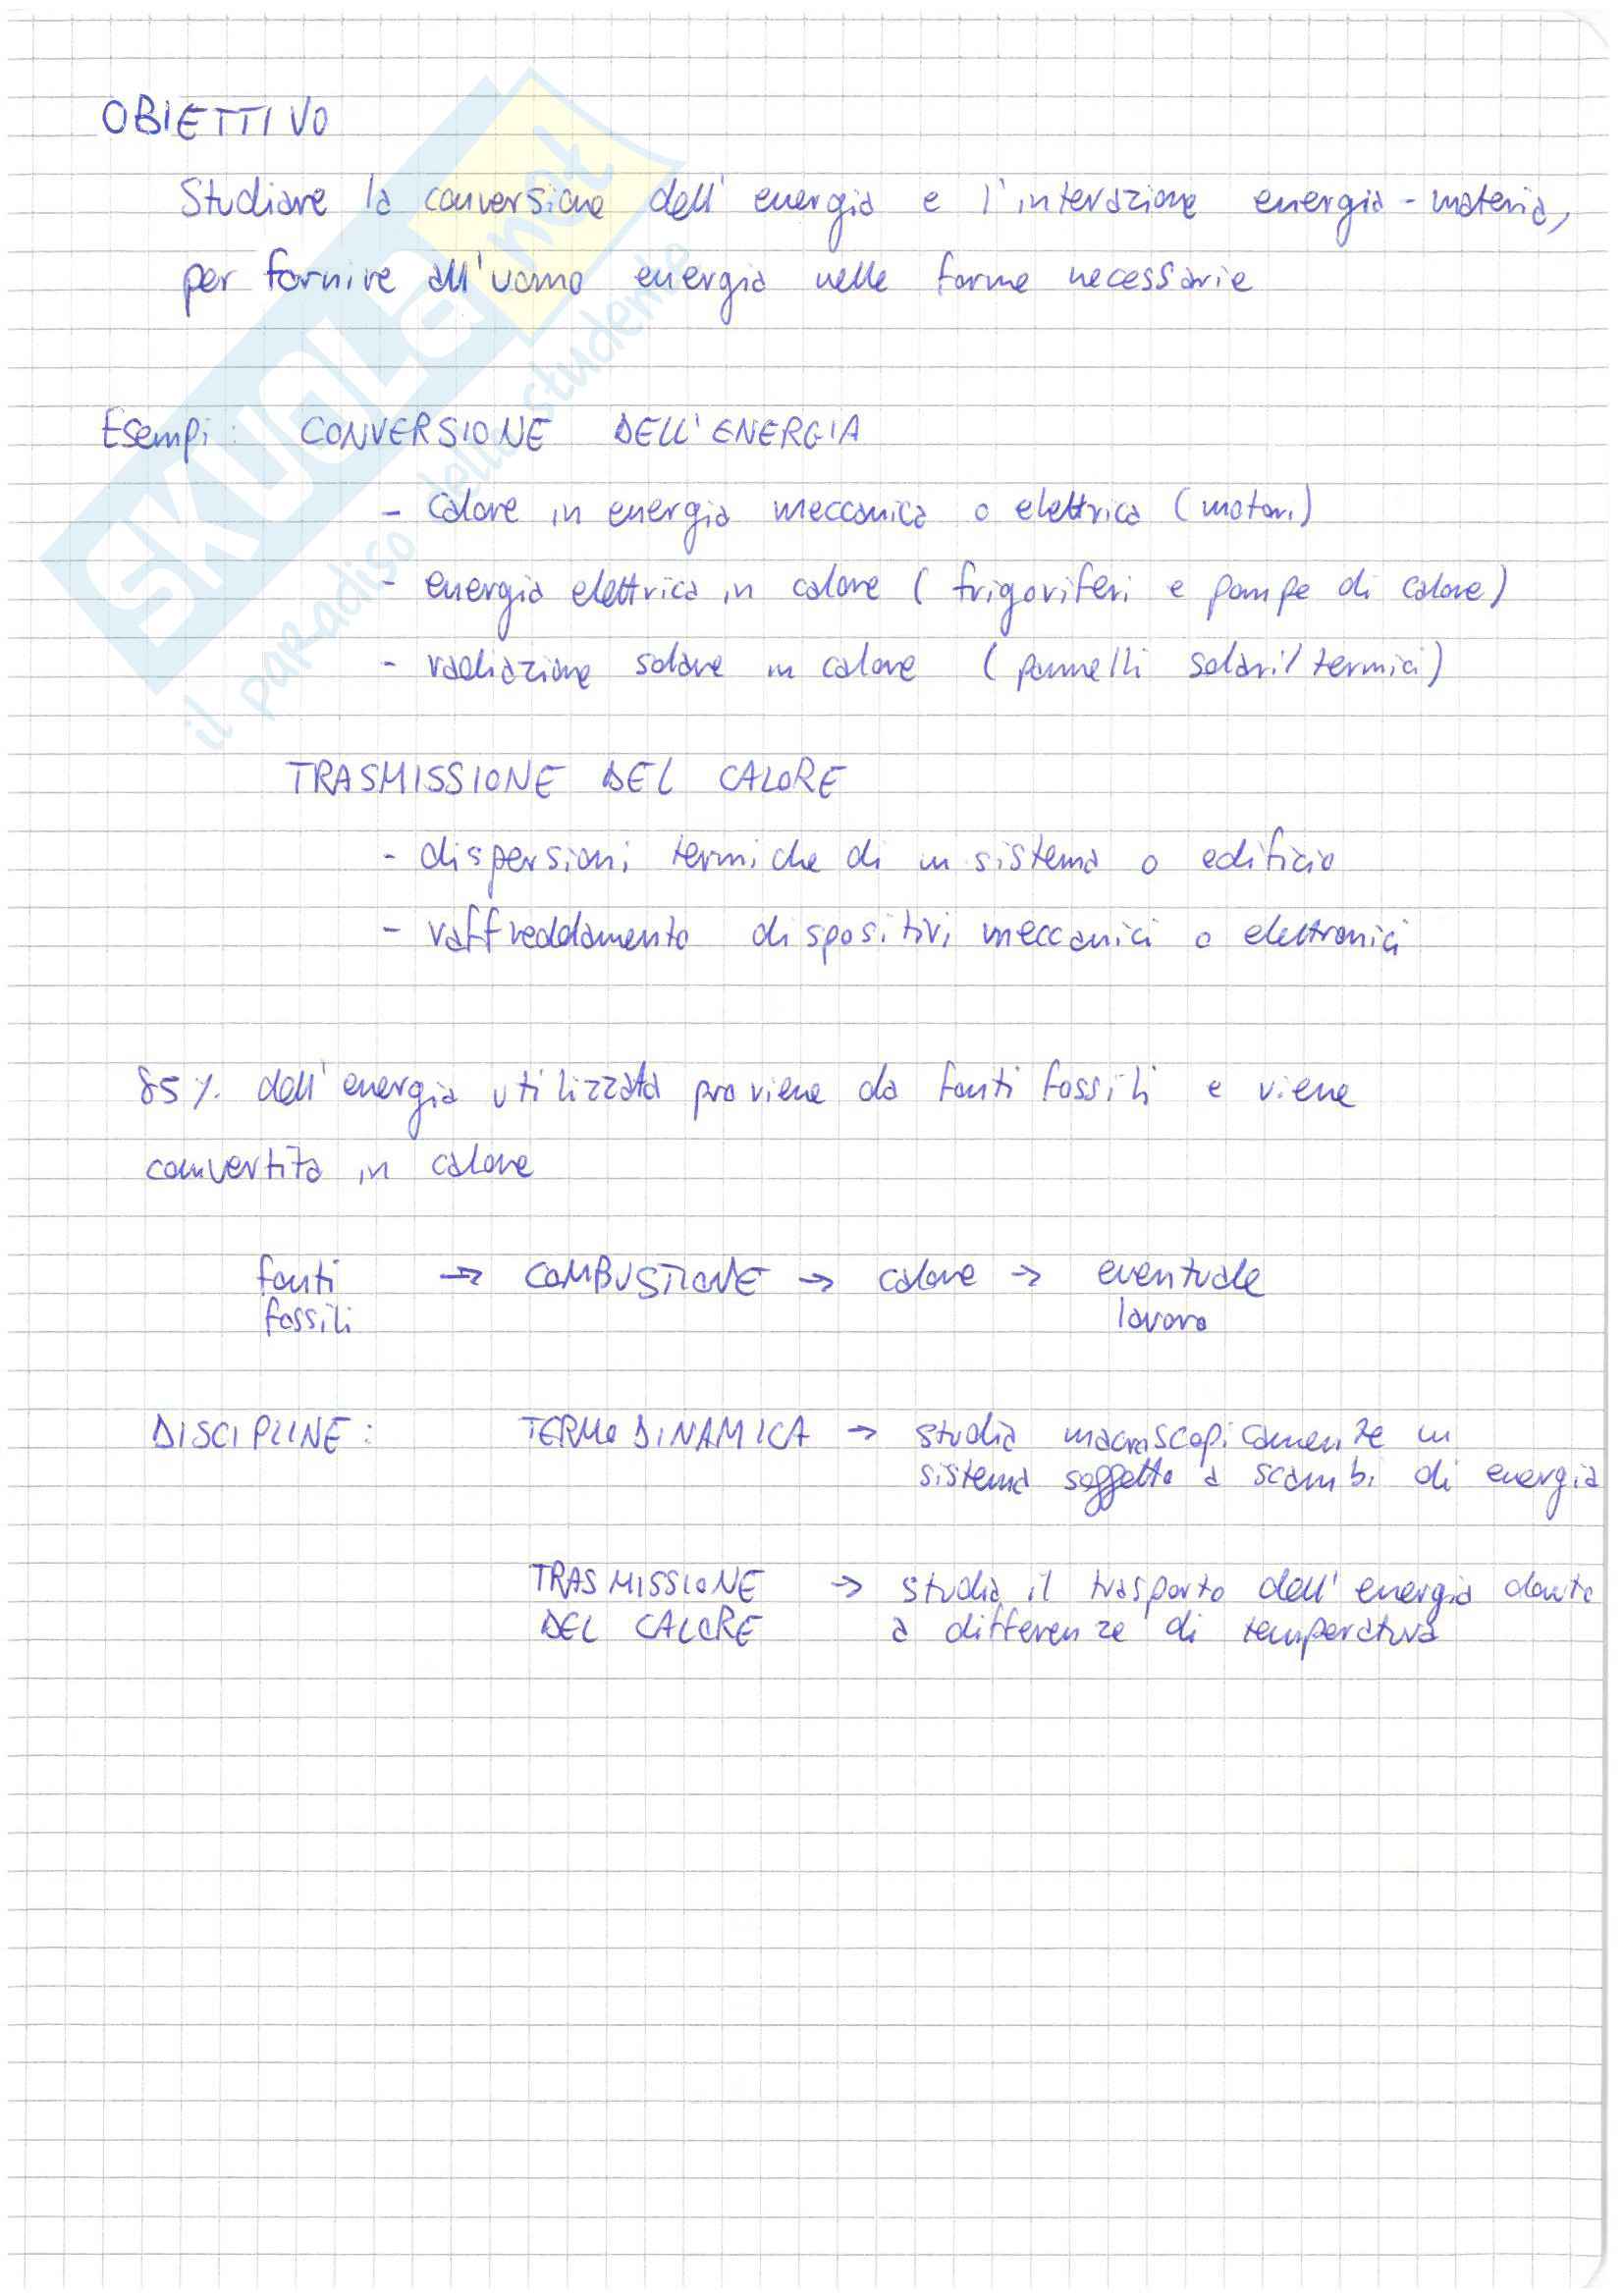 OBIETTIVO
Studiare la conversione dell'energia e l'interazione energia-materia,
per fornire all'uomo energia nelle forme necessarie
Esempi: CONVERSIONE DELL'ENERGIA
- calore in energia meccanica o elettrica (motori)
- energia elettrica in calore (frigoriferi e pompe di calore)
- radiazione solare in calore (pannelli solari/termici)
TRASMISSIONE DEL CALORE
- dispersioni termiche di un sistema o edificio
- raffreddamento dispositivi meccanici o elettronici
85% dell'energia utilizzata proviene da fonti fossili e viene
convertita in calore
fonti → COMBUSTIONE → calore → eventuale
fossili lavoro
DISCIPLINE: TERMODINAMICA → studia macroscopicamente un
sistema soggetto a scambi di energia
TRASMISSIONE → studia il trasporto dell'energia dovuto
DEL CALORE a differenze di temperatura
SKUOLA.net
il paradiso dello studente